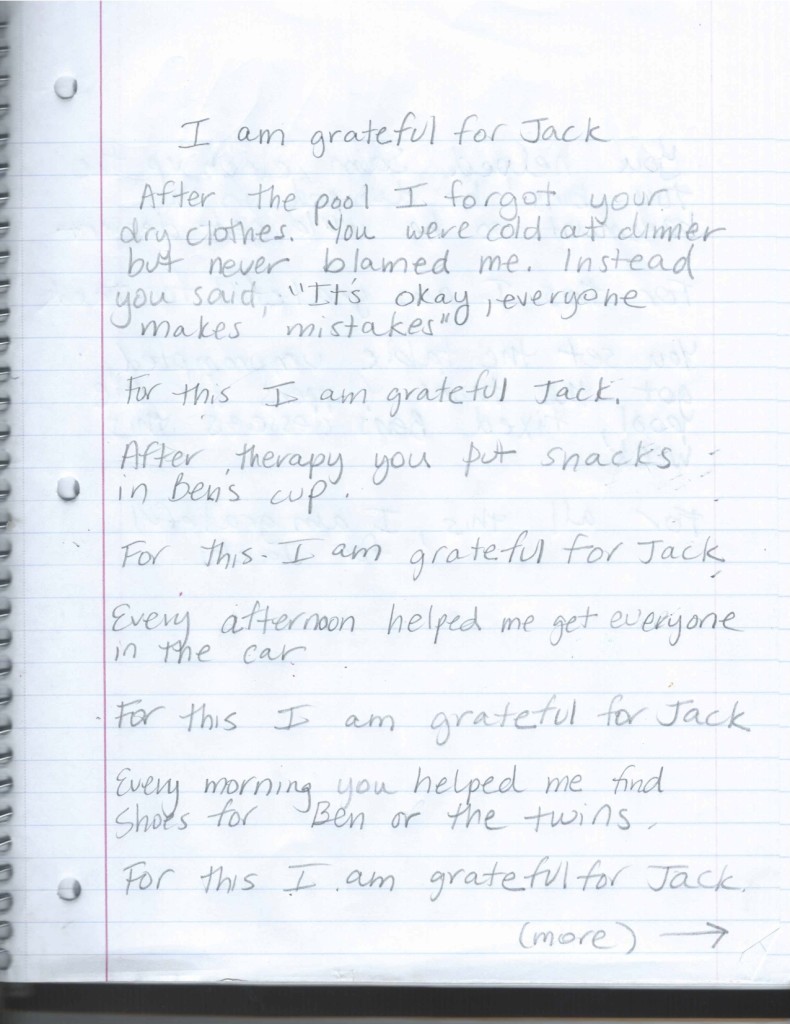 I am grateful for Jack
After the pool I forgot your
dry clothes. You were cold at dinner
but never blamed me. Instead
you said, "It's okay, everyone
makes mistakes"
For this I am grateful Jack.
After therapy you put snacks
in Ben's cup.
For this I am grateful for Jack
Every afternoon helped me get everyone
in the car
For this I am grateful for Jack
Every morning you helped me find
Shoes for Ben or the twins.
For this I am grateful for Jack.
(more) →